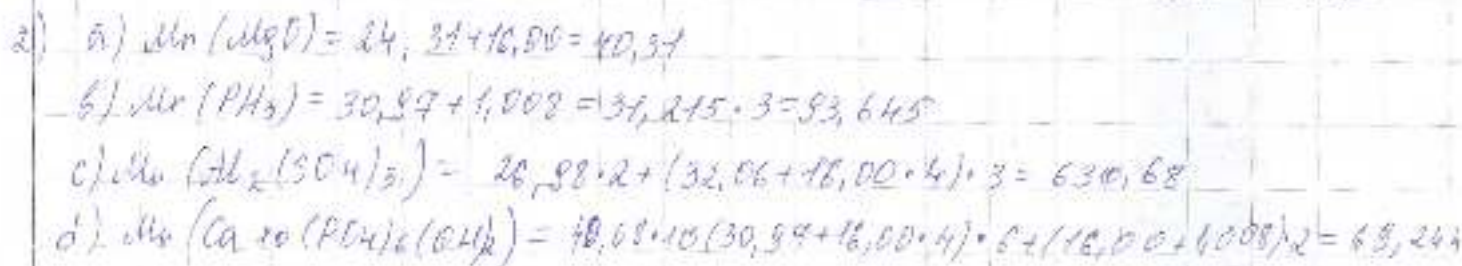 2) a) Mr (MgO) = 24,31+16,00 = 40,31
b) Mr (PH3) = 30,97+1,008 = 31,215·3 = 93,645
c) Mr (Al2(SO4)3) = 26,98·2+(32,06+16,00·4)·3 = 630,68
d) Mr (Ca10(PO4)6(OH)2) = 40,08·10(30,97+16,00·4)·6+(16,00+1,008)·2 = 69,244